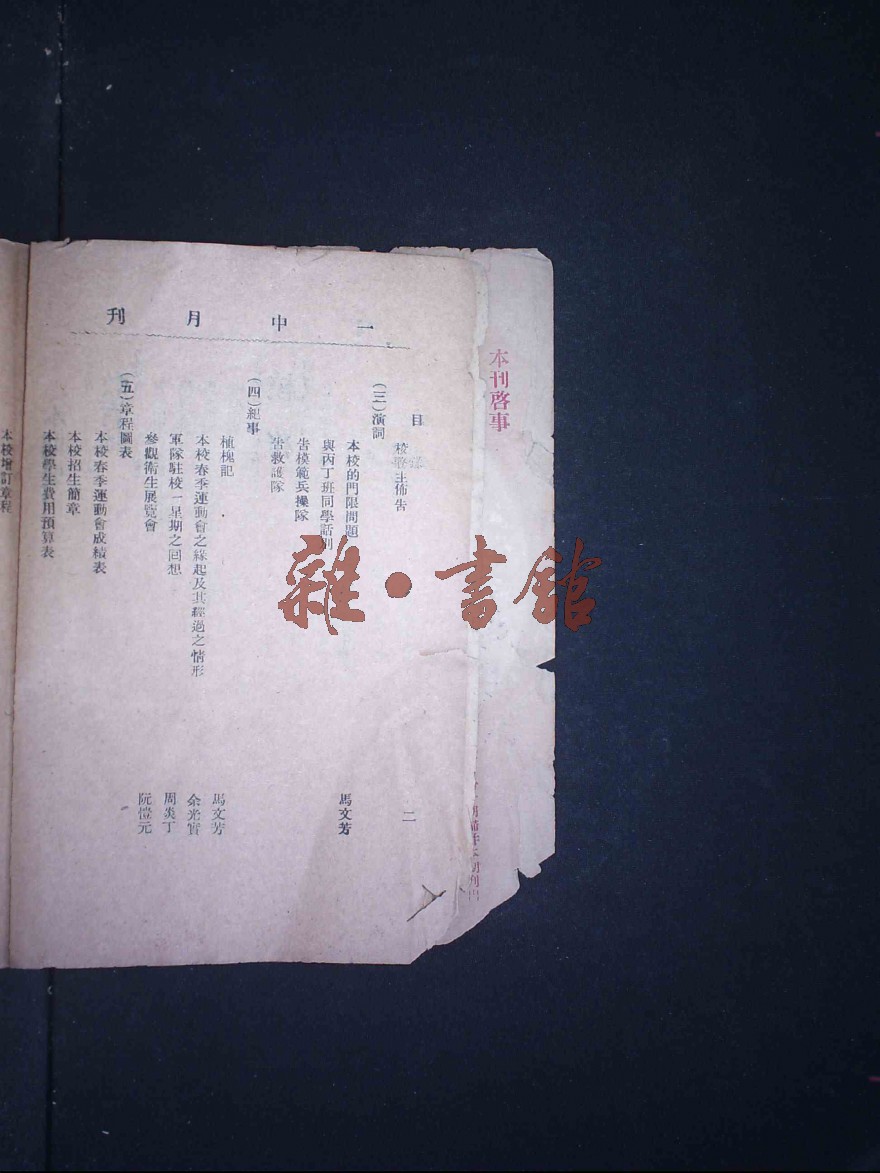 本刊啓事
一中月刊
目
二
校
主佈告
(三)演詞
本校的門限問題 馬文芳
與丙丁班同學話別
告模範兵操隊
告救護隊
(四)紀事
植槐記 馬文芳
本校春季運動會之緣起及其經過之情形 余光實
軍隊駐校一星期之回想 周炎丁
參觀衛生展覽會 阮愷元
(五)章程圖表
本校春季運動會成績表
本校招生簡章
本校學生費用預算表
本校增訂章程
雜·書館